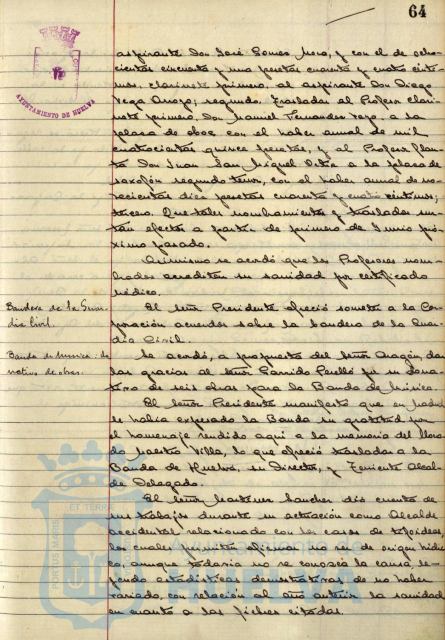 64
AYUNTAMIENTO DE HUELVA
aspirante Don José Gomes Mora, y con el de ocho-
cientas cincuenta y una pesetas cuarenta y cuatro cénti-
mos, clarinete primero, al aspirante Don Diego
Vega; segundo. Trasladar al Profesor clari-
nete primero, Don Manuel Fernandez, a la
plaza de oboe, con el haber anual de mil
cuatrocientas quince pesetas, y al Profesor
Don Juan San Miguel, a la plaza de
saxofón segundo tenor, con el haber anual de no-
vecientas diez pesetas cuarenta y cuatro céntimos;
tercero. Que tales nombramientos y traslados sur-
tan efectos a partir de primero de Junio pró-
ximo pasado.
Asimismo se acordó que los Profesores nom-
brados acrediten su sanidad por certificado
médico.
Bandera de la Guar-
dia Civil.
El señor Presidente ofreció someter a la Cor-
poración acuerdo sobre la bandera de la Guar-
dia Civil.
Banda de música: do-
nativo de obras.
Se acordó, a propuesta del señor Aragón, dar
las gracias al señor Garrido Perelló por su dona-
tivo de seis obras para la Banda de Música.
El señor Presidente manifestó que en Madrid
se había expresado la Banda su gratitud por
el homenaje rendido aquí a la memoria del llora-
do Maestro Villa, lo que ofreció trasladar a la
Banda de Huelva, su Director, y Teniente Alcal-
de Delegado.
El señor Martínez Sanchez dió cuenta de
sus trabajos durante su actuación como Alcalde
accidental relacionado con los casos de tifoideas,
los cuales permiten afirmar no ser de origen hídri-
co, aunque todavía no se conozca la causa, le-
yendo estadísticas demostrativas de no haber
variado, con relación al año anterior la sanidad
en cuanto a las fiebres citadas.
PORTUS MARIS ET TERRAE
Ayuntamiento de
HUELVA